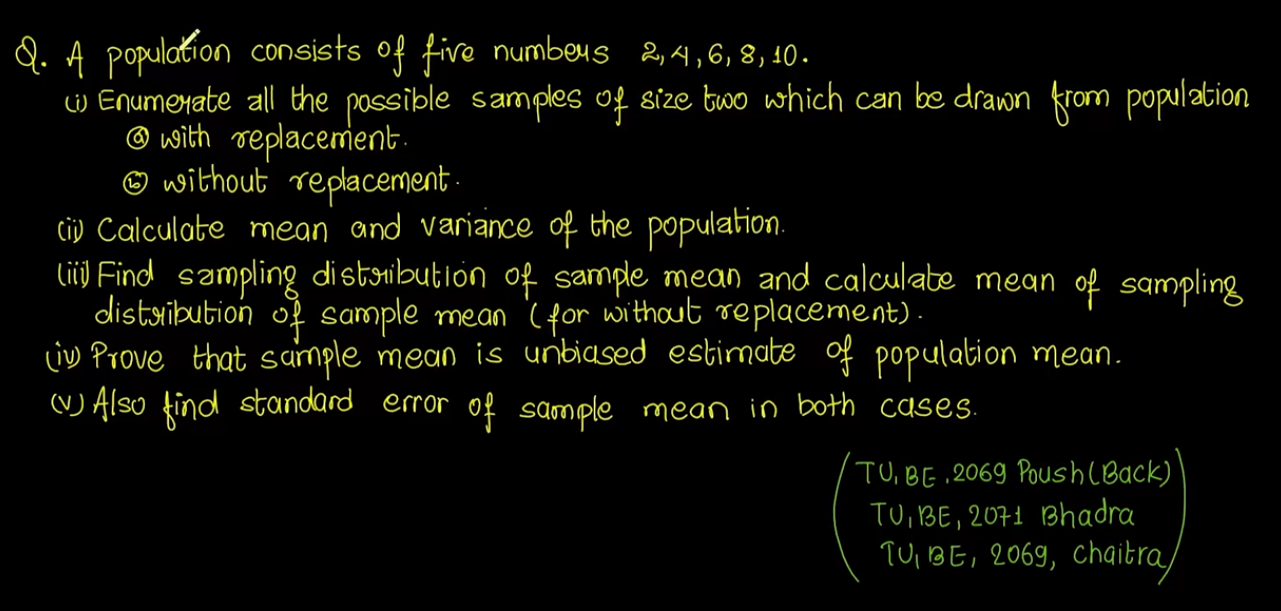 Q. A population consists of five numbers 2, 4, 6, 8, 10.
(i) Enumerate all the possible samples of size two which can be drawn from population
(a) with replacement.
(b) without replacement.
(ii) Calculate mean and variance of the population.
(iii) Find sampling distribution of sample mean and calculate mean of sampling
distribution of sample mean (for without replacement).
(iv) Prove that sample mean is unbiased estimate of population mean.
(v) Also find standard error of sample mean in both cases.
(TU, BE, 2069 Poush (Back)
TU, BE, 2071 Bhadra
TU, BE, 2069, Chaitra)